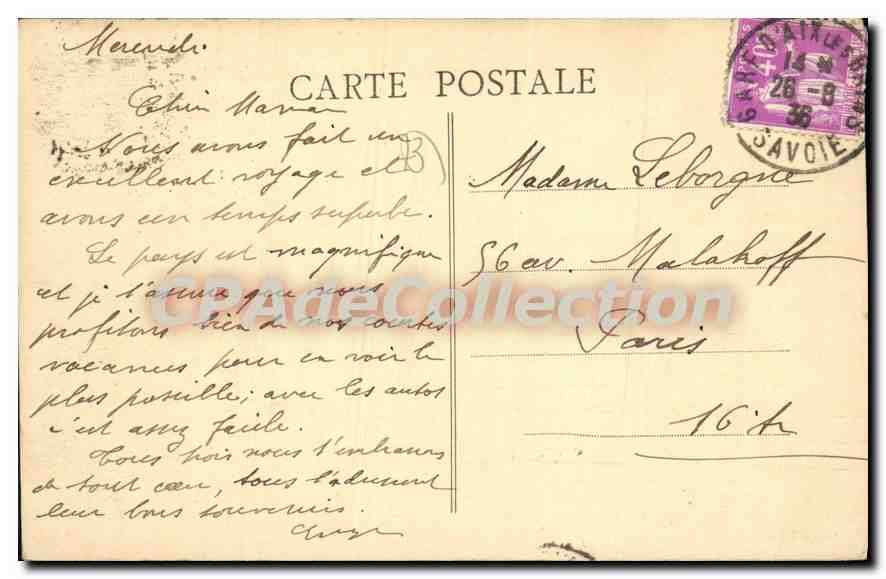 Mercredi.
CARTE POSTALE
Chère Maman
Nous avons fait un
excellent voyage et
avons eu un temps superbe.
Le pays est magnifique
et je t'assure que nous
profitons bien de nos courtes
vacances pour en voir le
plus possible; avec les autos
c'est assez facile.
Tous trois nous t'embrassons
de tout cœur, tous t'adressent
leur bons souvenirs.
B
Madame Leborgne
56 av. Malakoff
Paris
16e Ar
GARE D'AIX LES BAINS
26-8
36
SAVOIE
40c
CPAdeCollection.com